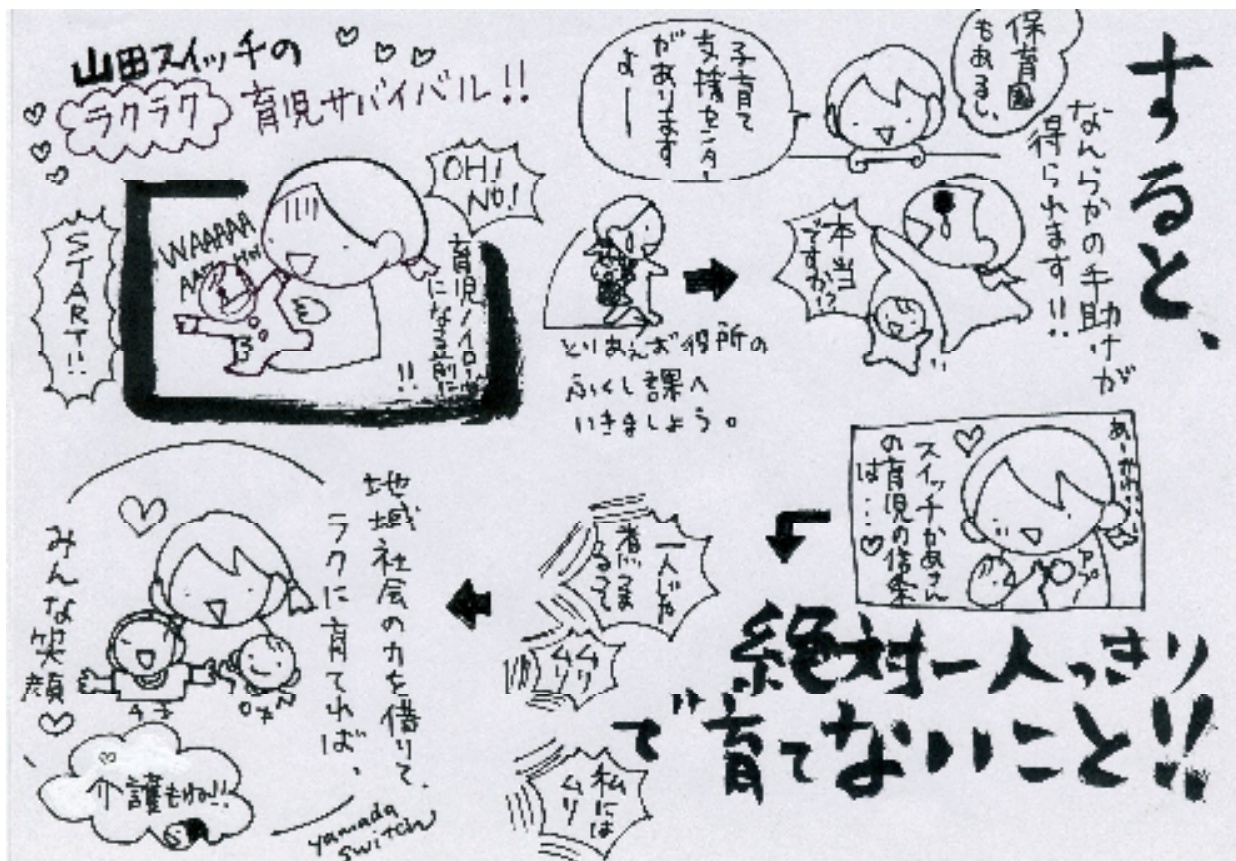 山田スイッチの
ラクラク
育児サバイバル!!
START!!
WAAAAA
OH!
NO!
育児ノイローゼ
になる前に
!!
とりあえず役所の
ふくし課へ
いきましょう。
子育て
支援センター
があります
よー
保育園
もあるし、
すると、
なんらかの手助けが
得られます!!
本当
ですか!?
スイッチかあさん
の育児の信条
は…♡
アプ
絶対一人っきり
で育てないこと!!
一人じゃ
ムリ
ムリ
私には
ムリ
地域社会の力を借りて、
ラクに育てれば、
みんな笑顔♡
介護もね!!
yamada
switch